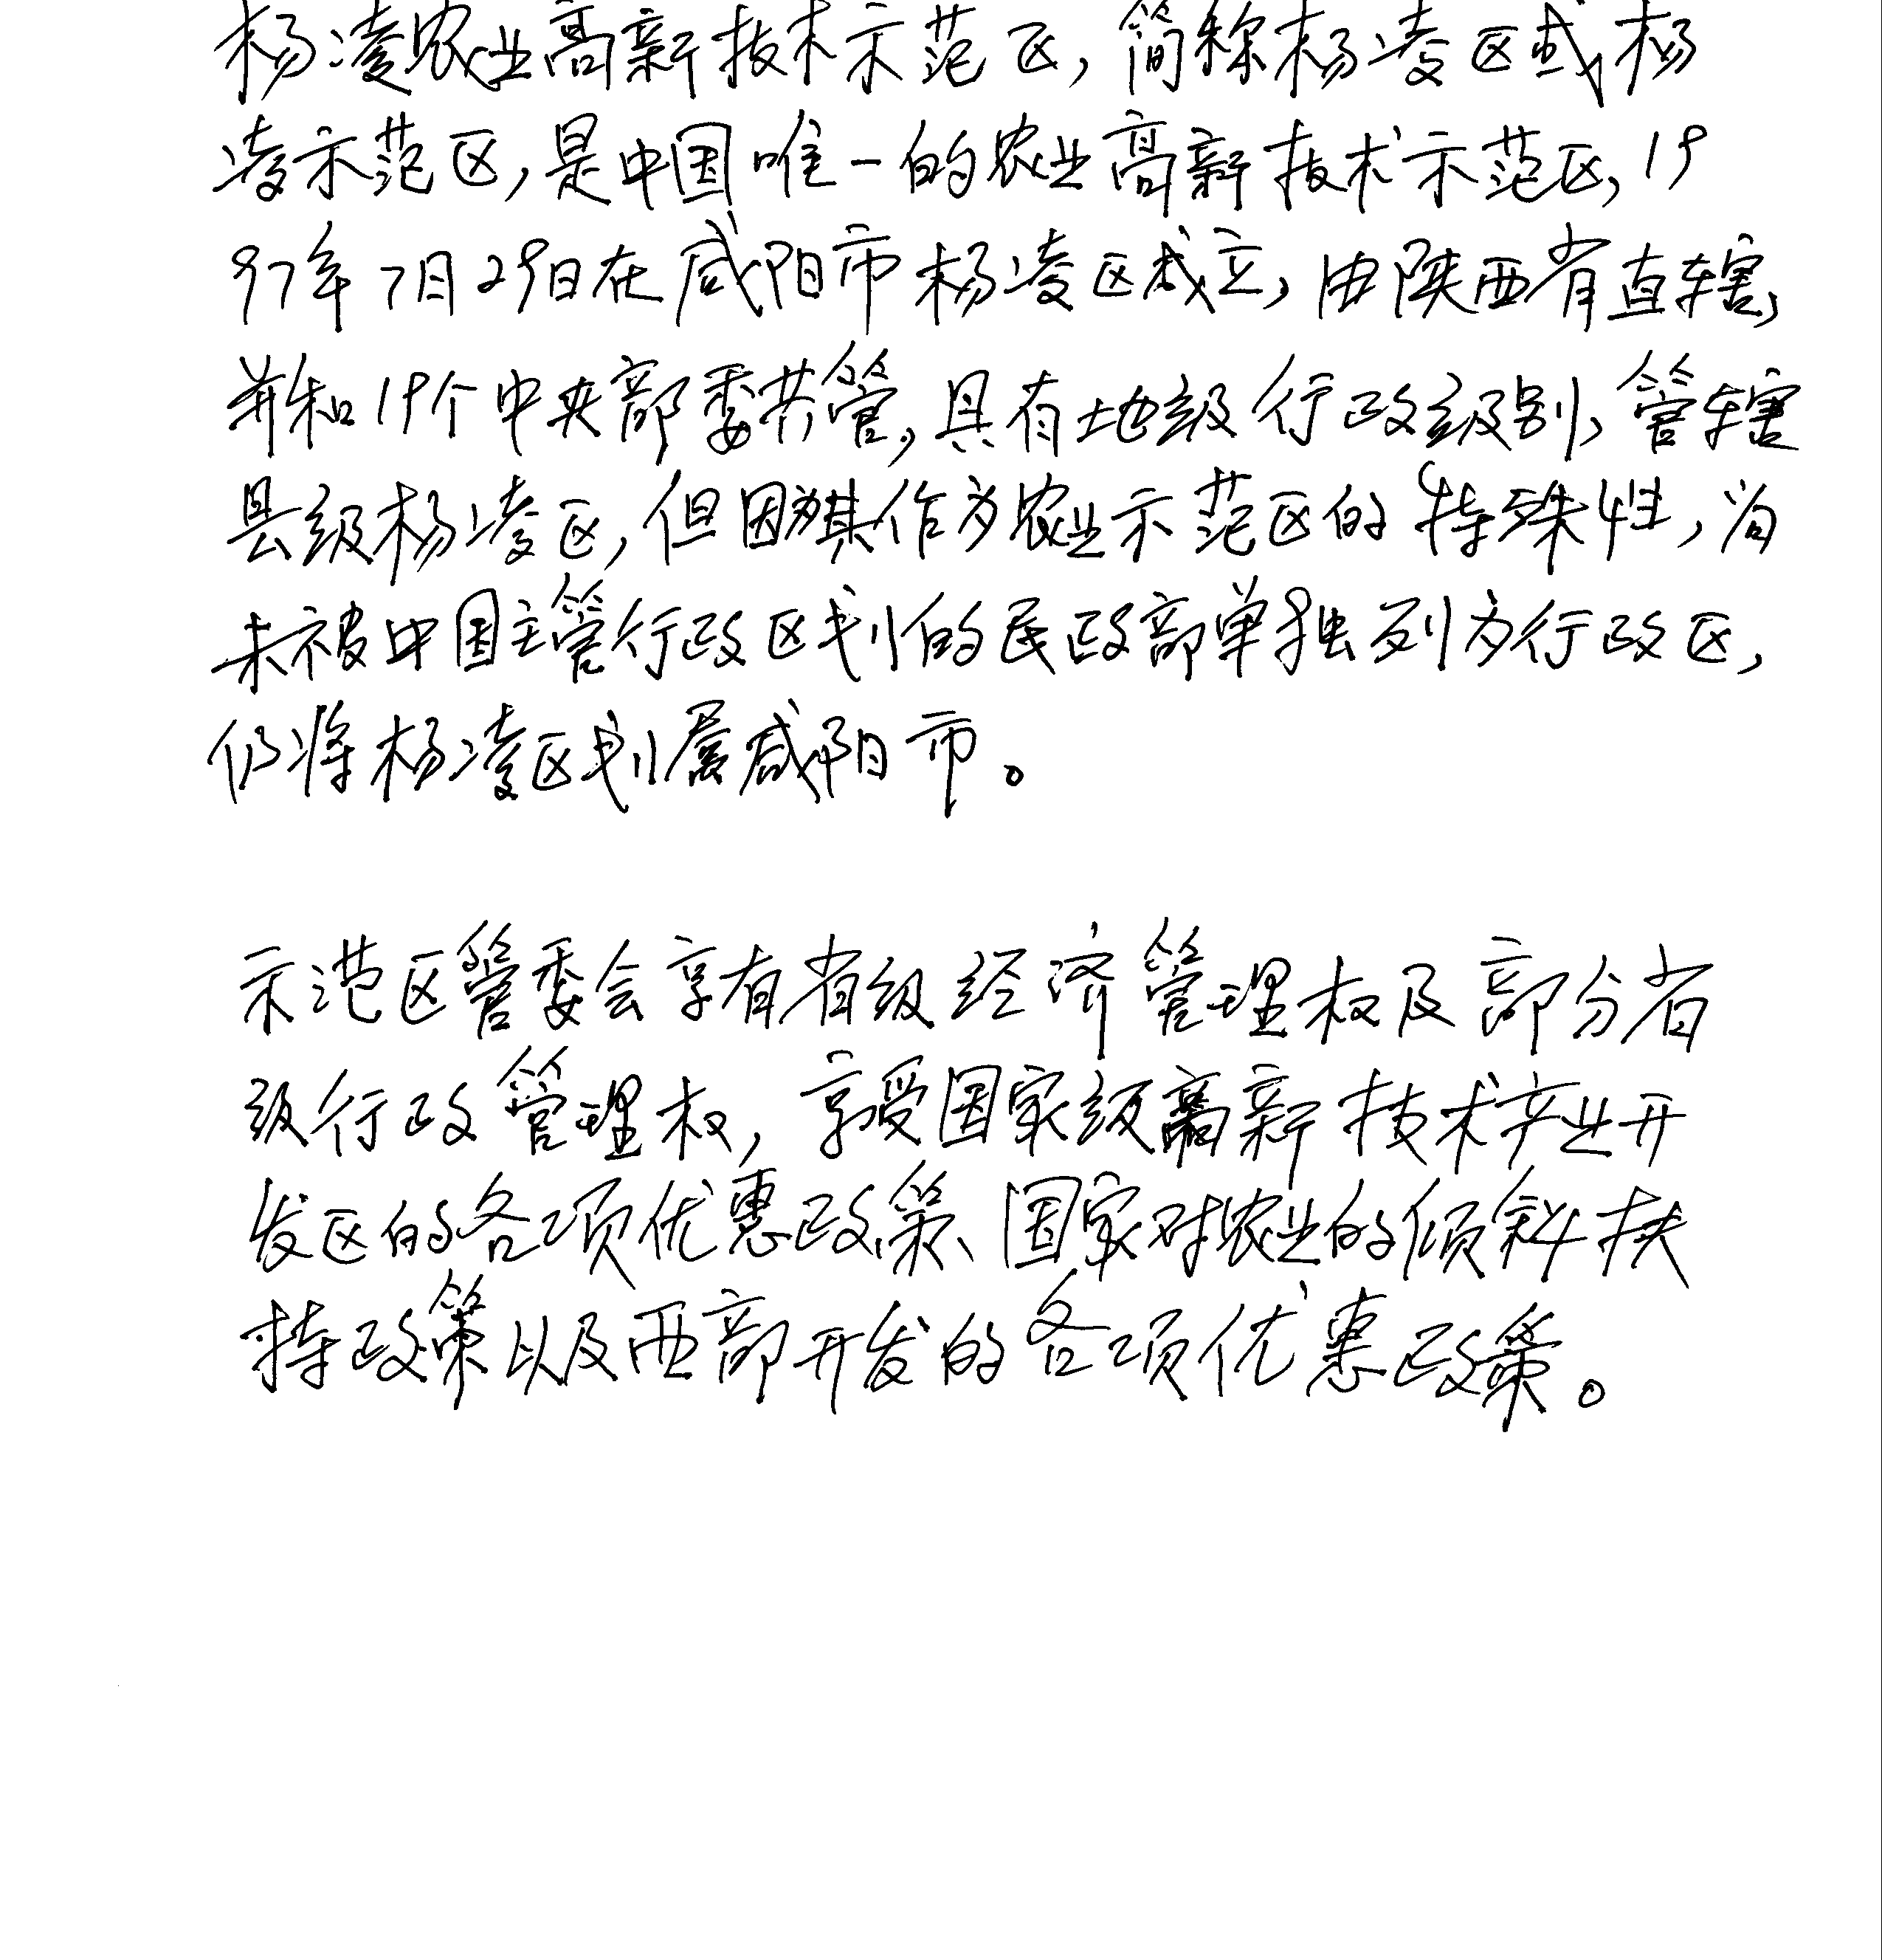 杨凌农业高新技术示范区,简称杨凌区或杨
凌示范区,是中国唯一的农业高新技术示范区,19
97年7月29日在咸阳市杨凌区成立,由陕西省直辖,
并和19个中央部委共管,具有地级行政级别,管辖
县级杨凌区,但因为其作为农业示范区的特殊性,尚
未被中国主管行政区划的民政部单独列为行政区,
仍将杨凌区划属咸阳市。
示范区管委会享有省级经济管理权及部分省
级行政管理权,享受国家级高新技术产业开
发区的各项优惠政策、国家对农业的倾斜扶
持政策以及西部开发的各项优惠政策。